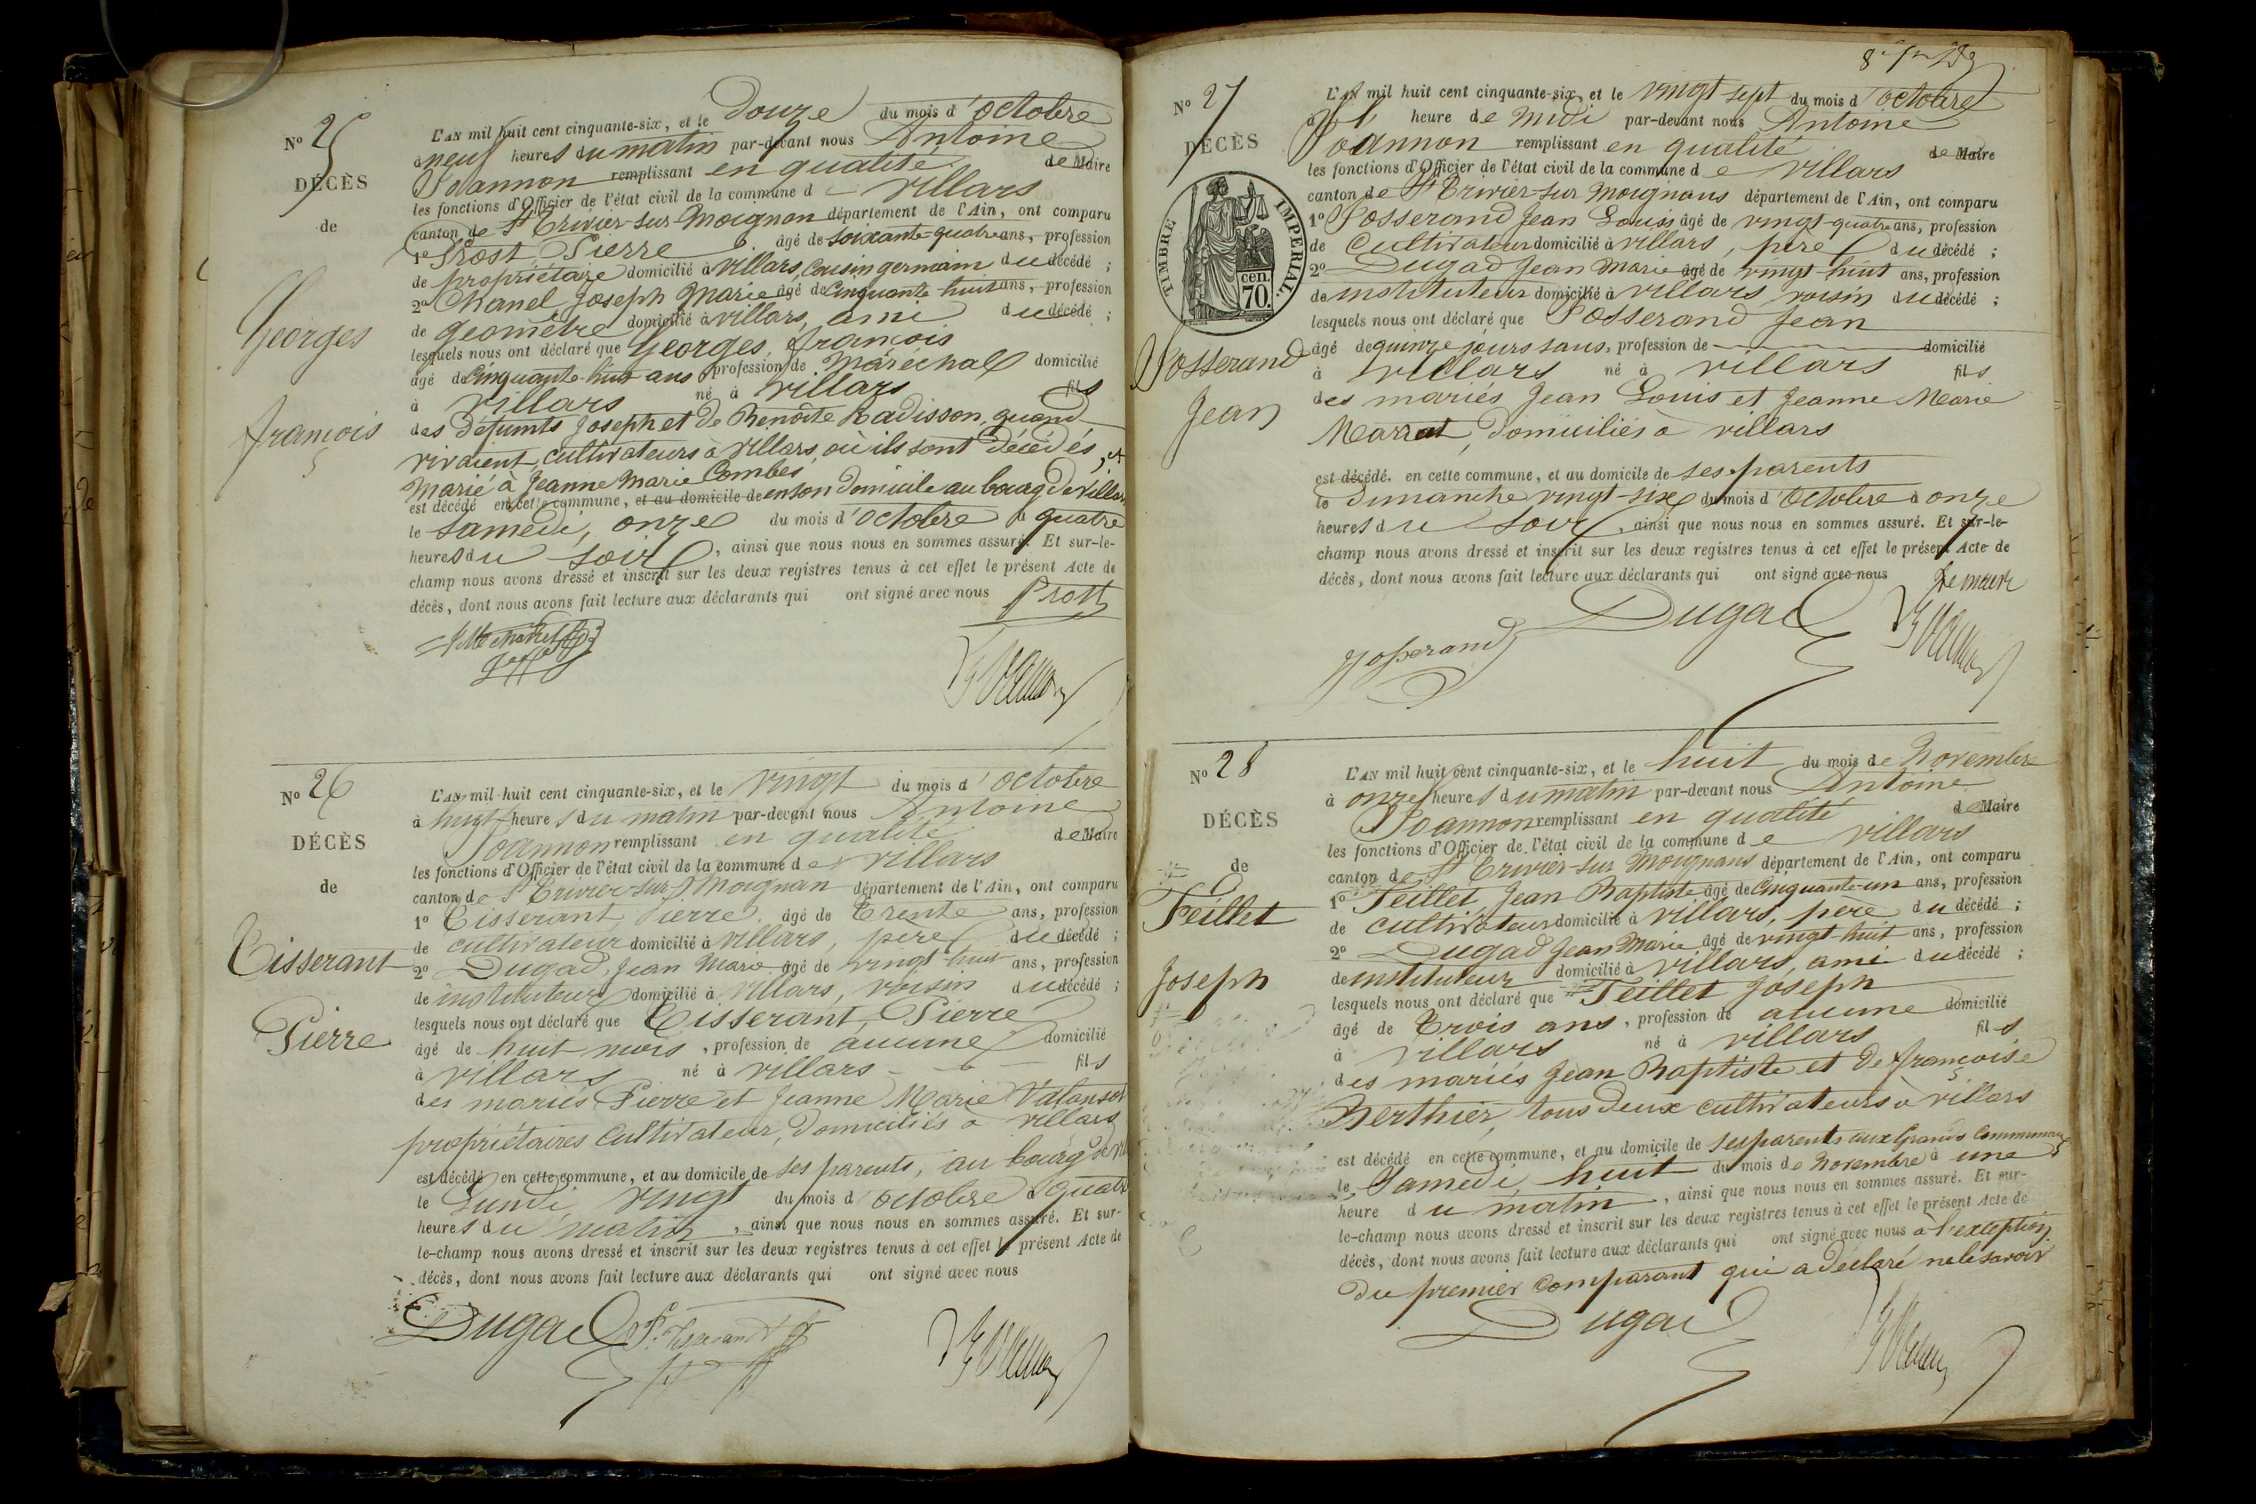 N° 25
DÉCÈS
de
Georges
françois
L'AN mil huit cent cinquante-six, et le Douze du mois d'octobre
à neuf heures du matin par-devant nous Antoine
Joannon remplissant en qualité de Maire
les fonctions d'Officier de l'état civil de la commune d villars
canton de St Trivier-sur-Moignon département de l'Ain, ont comparu
1° Prost Pierre âgé de soixante-quatre ans, profession
de propriétaire domicilié à villars, Cousin germain du décédé ;
2° Chanel Joseph Marie âgé de cinquante-huit ans, profession
de géomètre domicilié à villars, ami du décédé ;
lesquels nous ont déclaré que Georges, françois
âgé de cinquante-huit ans profession de Maréchal domicilié
à villars né à villars fils
des défunts Joseph et de Benoîte Radisson, quand
vivaient cultivateurs à villars, où ils sont décédés, et
Marié à Jeanne Marie Combes
est décédé en cette commune, et au domicile de en son domicile au bourg de villars
le samedi, onze du mois d'octobre à quatre
heures du soir, ainsi que nous nous en sommes assuré. Et sur-le-
champ nous avons dressé et inscrit sur les deux registres tenus à cet effet le présent Acte de
décès, dont nous avons fait lecture aux déclarants qui ont signé avec nous Prost
N° 26
DÉCÈS
de
Tisserant
Pierre
L'AN mil huit cent cinquante-six, et le vingt du mois d'octobre
à huit heures du matin par-devant nous Antoine
Joannon remplissant en qualité de Maire
les fonctions d'Officier de l'état civil de la commune de villars
canton de St Trivier-sur-Moignan département de l'Ain, ont comparu
1° Tisserant, Pierre âgé de Trente ans, profession
de cultivateur domicilié à villars, père du décédé ;
2° Dugad, Jean Marie âgé de vingt-huit ans, profession
de instituteur domicilié à villars, voisin du décédé ;
lesquels nous ont déclaré que Tisserant, Pierre
âgé de huit mois, profession de aucune domicilié
à villars né à villars fils
des mariés Pierre et Jeanne Marie
propriétaires Cultivateur, domiciliés à villars
est décédé en cette commune, et au domicile de ses parents, au bourg de
le Lundi, vingt du mois d'octobre à quatre
heures du matin, ainsi que nous nous en sommes assuré. Et sur-
le-champ nous avons dressé et inscrit sur les deux registres tenus à cet effet le présent Acte de
décès, dont nous avons fait lecture aux déclarants qui ont signé avec nous
Dugad P. Tisserant
N° 27
DÉCÈS
TIMBRE IMPÉRIAL.
cen.
70.
Josserand
Jean
L'AN mil huit cent cinquante-six, et le vingt sept du mois d'octobre
à heure de Midi par-devant nous Antoine
Joannon remplissant en qualité de Maire
les fonctions d'Officier de l'état civil de la commune de villars
canton de St Trivier-sur Moignans département de l'Ain, ont comparu
1° Josserand Jean Louis âgé de vingt-quatre ans, profession
de Cultivateur domicilié à villars, père du décédé ;
2° Dugad Jean Marie âgé de vingt-huit ans, profession
de instituteur domicilié à villars voisin du décédé ;
lesquels nous ont déclaré que Josserand Jean
âgé de quinze jours sans, profession de domicilié
à villars né à villars fils
des mariés Jean Louis et Jeanne Marie
Marrat, domiciliés à villars
est décédé. en cette commune, et au domicile de ses parents
le dimanche vingt-six du mois d'octobre à onze
heures du soir, ainsi que nous nous en sommes assuré. Et sur-le-
champ nous avons dressé et inscrit sur les deux registres tenus à cet effet le présent Acte de
décès, dont nous avons fait lecture aux déclarants qui ont signé avec nous
Le maire
Josserand Dugad
N° 28
DÉCÈS
de
Feillet
Joseph
L'AN mil huit cent cinquante-six, et le huit du mois de Novembre
à onze heures du matin par-devant nous Antoine
Joannon remplissant en qualité de Maire
les fonctions d'Officier de l'état civil de la commune de villars
canton de St Trivier-sur Moignans département de l'Ain, ont comparu
1° Feillet Jean Baptiste âgé de cinquante-un ans, profession
de cultivateur domicilié à villars, père du décédé ;
2° Dugad Jean Marie âgé de vingt-huit ans, profession
de instituteur domicilié à villars, ami du décédé ;
lesquels nous ont déclaré que Feillet Joseph
âgé de Trois ans, profession de aucune domicilié
à villars né à villars fils
des mariés Jean Baptiste et de françoise
Berthier, tous deux cultivateurs à villars
est décédé en cette commune, et au domicile de ses parents aux Grands Communaux
le Samedi huit du mois de Novembre à une
heure du matin, ainsi que nous nous en sommes assuré. Et sur-
le-champ nous avons dressé et inscrit sur les deux registres tenus à cet effet le présent Acte de
décès, dont nous avons fait lecture aux déclarants qui ont signé avec nous à l'exception
du premier Comparant qui a déclaré ne le savoir
Dugad